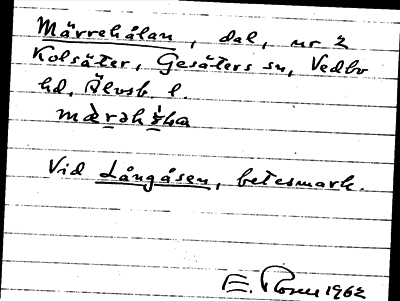 Märrehålan, dal, nr 2
Kolsäter, Gesäters sn, Vedbo
hd, Älvsb l.
Vid Långåsen, betesmark.
E. Rosell 1962